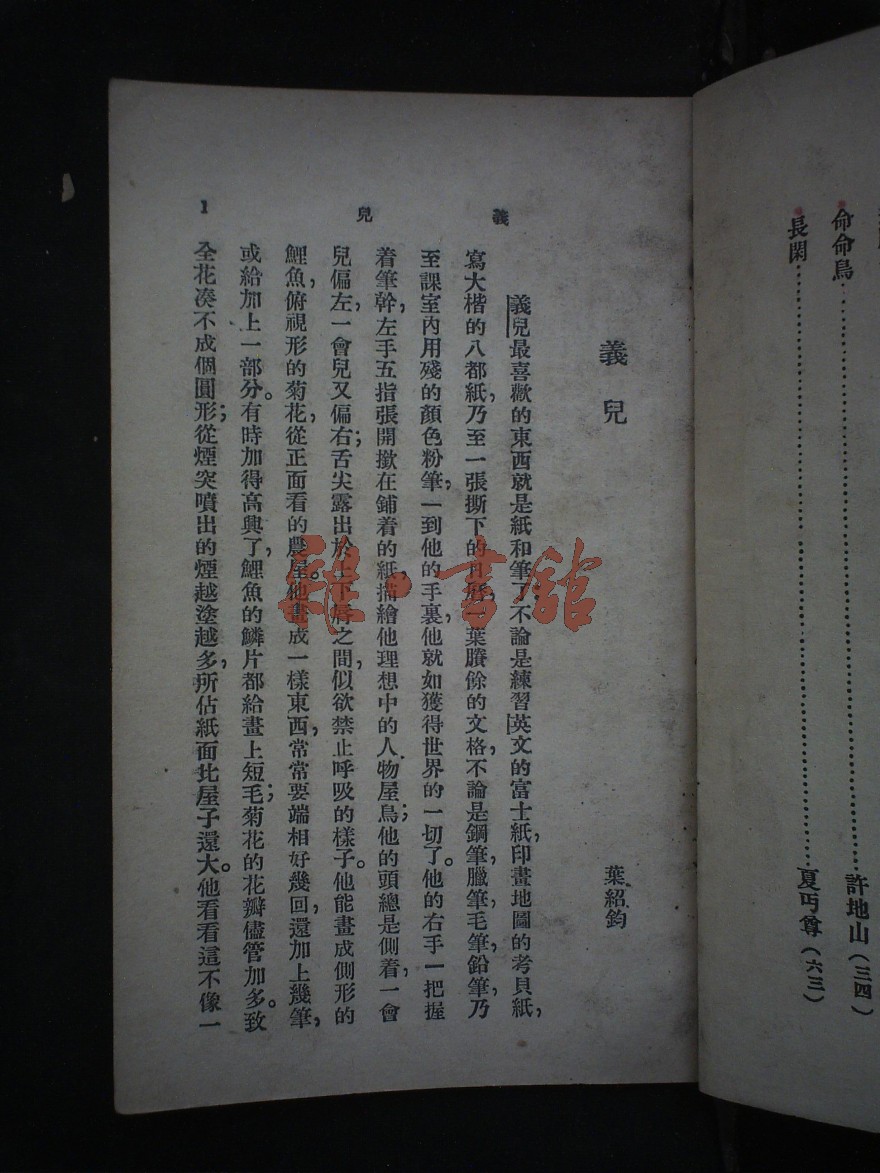 命命鳥……許地山(三四)
長閑……夏丏尊(六三)
義兒
葉紹鈞
義兒最喜歡的東西就是紙和筆了,不論是練習英文的富士紙,印畫地圖的考貝紙,
寫大楷的八都紙,乃至一張撕下的月曆,一葉賸餘的文格,不論是鋼筆,臘筆,毛筆,鉛筆,乃
至課室內用殘的顏色粉筆,一到他的手裏,他就如獲得世界的一切了。他的右手一把握
着筆幹,左手五指張開撳在鋪着的紙,描繪他理想中的人物屋鳥;他的頭總是側着,一會
兒偏左,一會兒又偏右;舌尖露出於上下唇之間,似欲禁止呼吸的樣子。他能畫成側形的
鯉魚,俯視形的菊花,從正面看的農屋。他畫成一樣東西,常常要端相好幾回,還加上幾筆,
或給加上一部分。有時加得高興了,鯉魚的鱗片都給畫上短毛;菊花的花瓣儘管加多。致
全花湊不成個圓形;從煙突噴出的煙越塗越多,所佔紙面比屋子還大。他看看這不像一
義兒
1
雜·書館